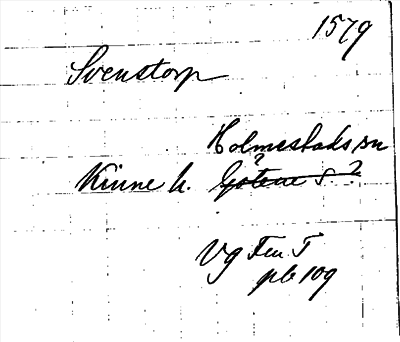 1579
Svenstorp
Holmestads sn
?
Kinne h. Götene s. ?
Vg Fru T
pb 109